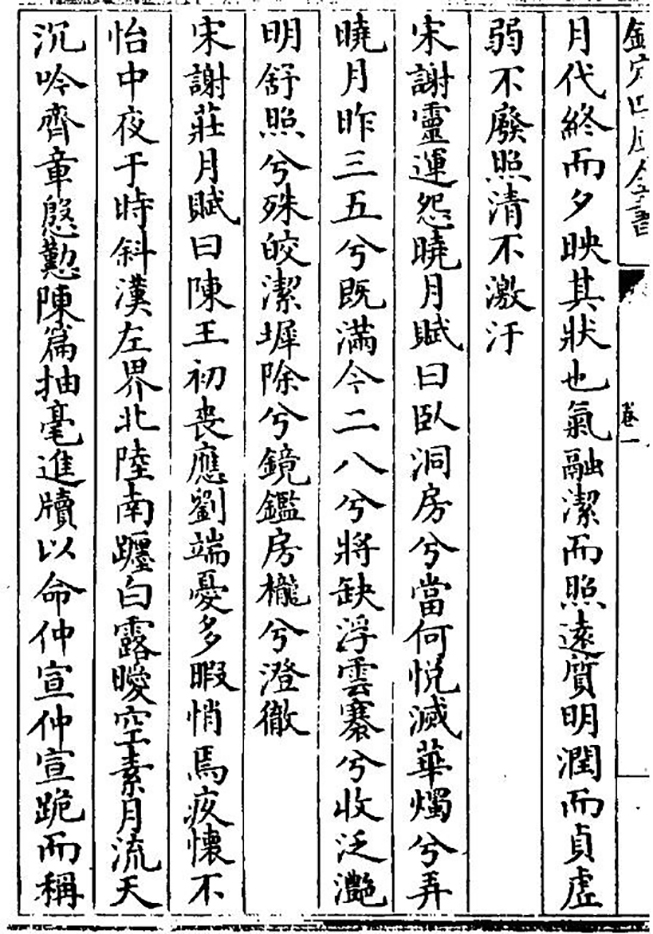 欽定四庫全書
卷一
月代終而夕映其狀也氣融潔而照遠質明潤而貞虛
弱不廢照清不激汙
宋謝靈運怨曉月賦曰臥洞房兮當何悅滅華燭兮弄
曉月昨三五兮既滿今二八兮將缺浮雲褰兮收泛灔
明舒照兮殊皎潔墀除兮鏡鑑房櫳兮澄徹
宋謝莊月賦曰陳王初喪應劉端憂多暇悄焉疚懷不
怡中夜于時斜漢左界北陸南躔白露曖空素月流天
沉吟齊章慇懃陳篇抽毫進牘以命仲宣仲宣跪而稱